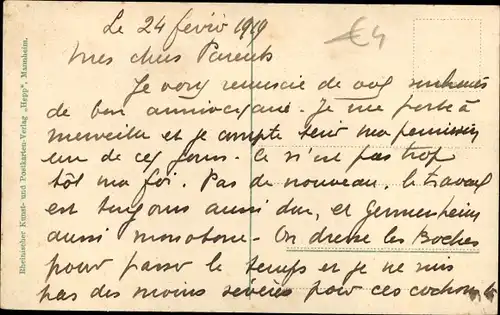 Le 24 fevir 1919
€4
Mes chers Parents
Je vous remercie de vos souhaits
de bon anniversaire. Je me porte à
merveille et je compte tenir ma permission
un de ces jours. Ce n'est pas trop
tôt ma foi. Pas de nouveau, le travail
est toujours aussi dur, et Germersheim
aussi monotone. On dresse les Boches
pour passer le temps et je ne suis
pas des moins sevères pour ces cochons là
Rheinischer Kunst- und Postkarten-Verlag „Hepp", Mannheim.